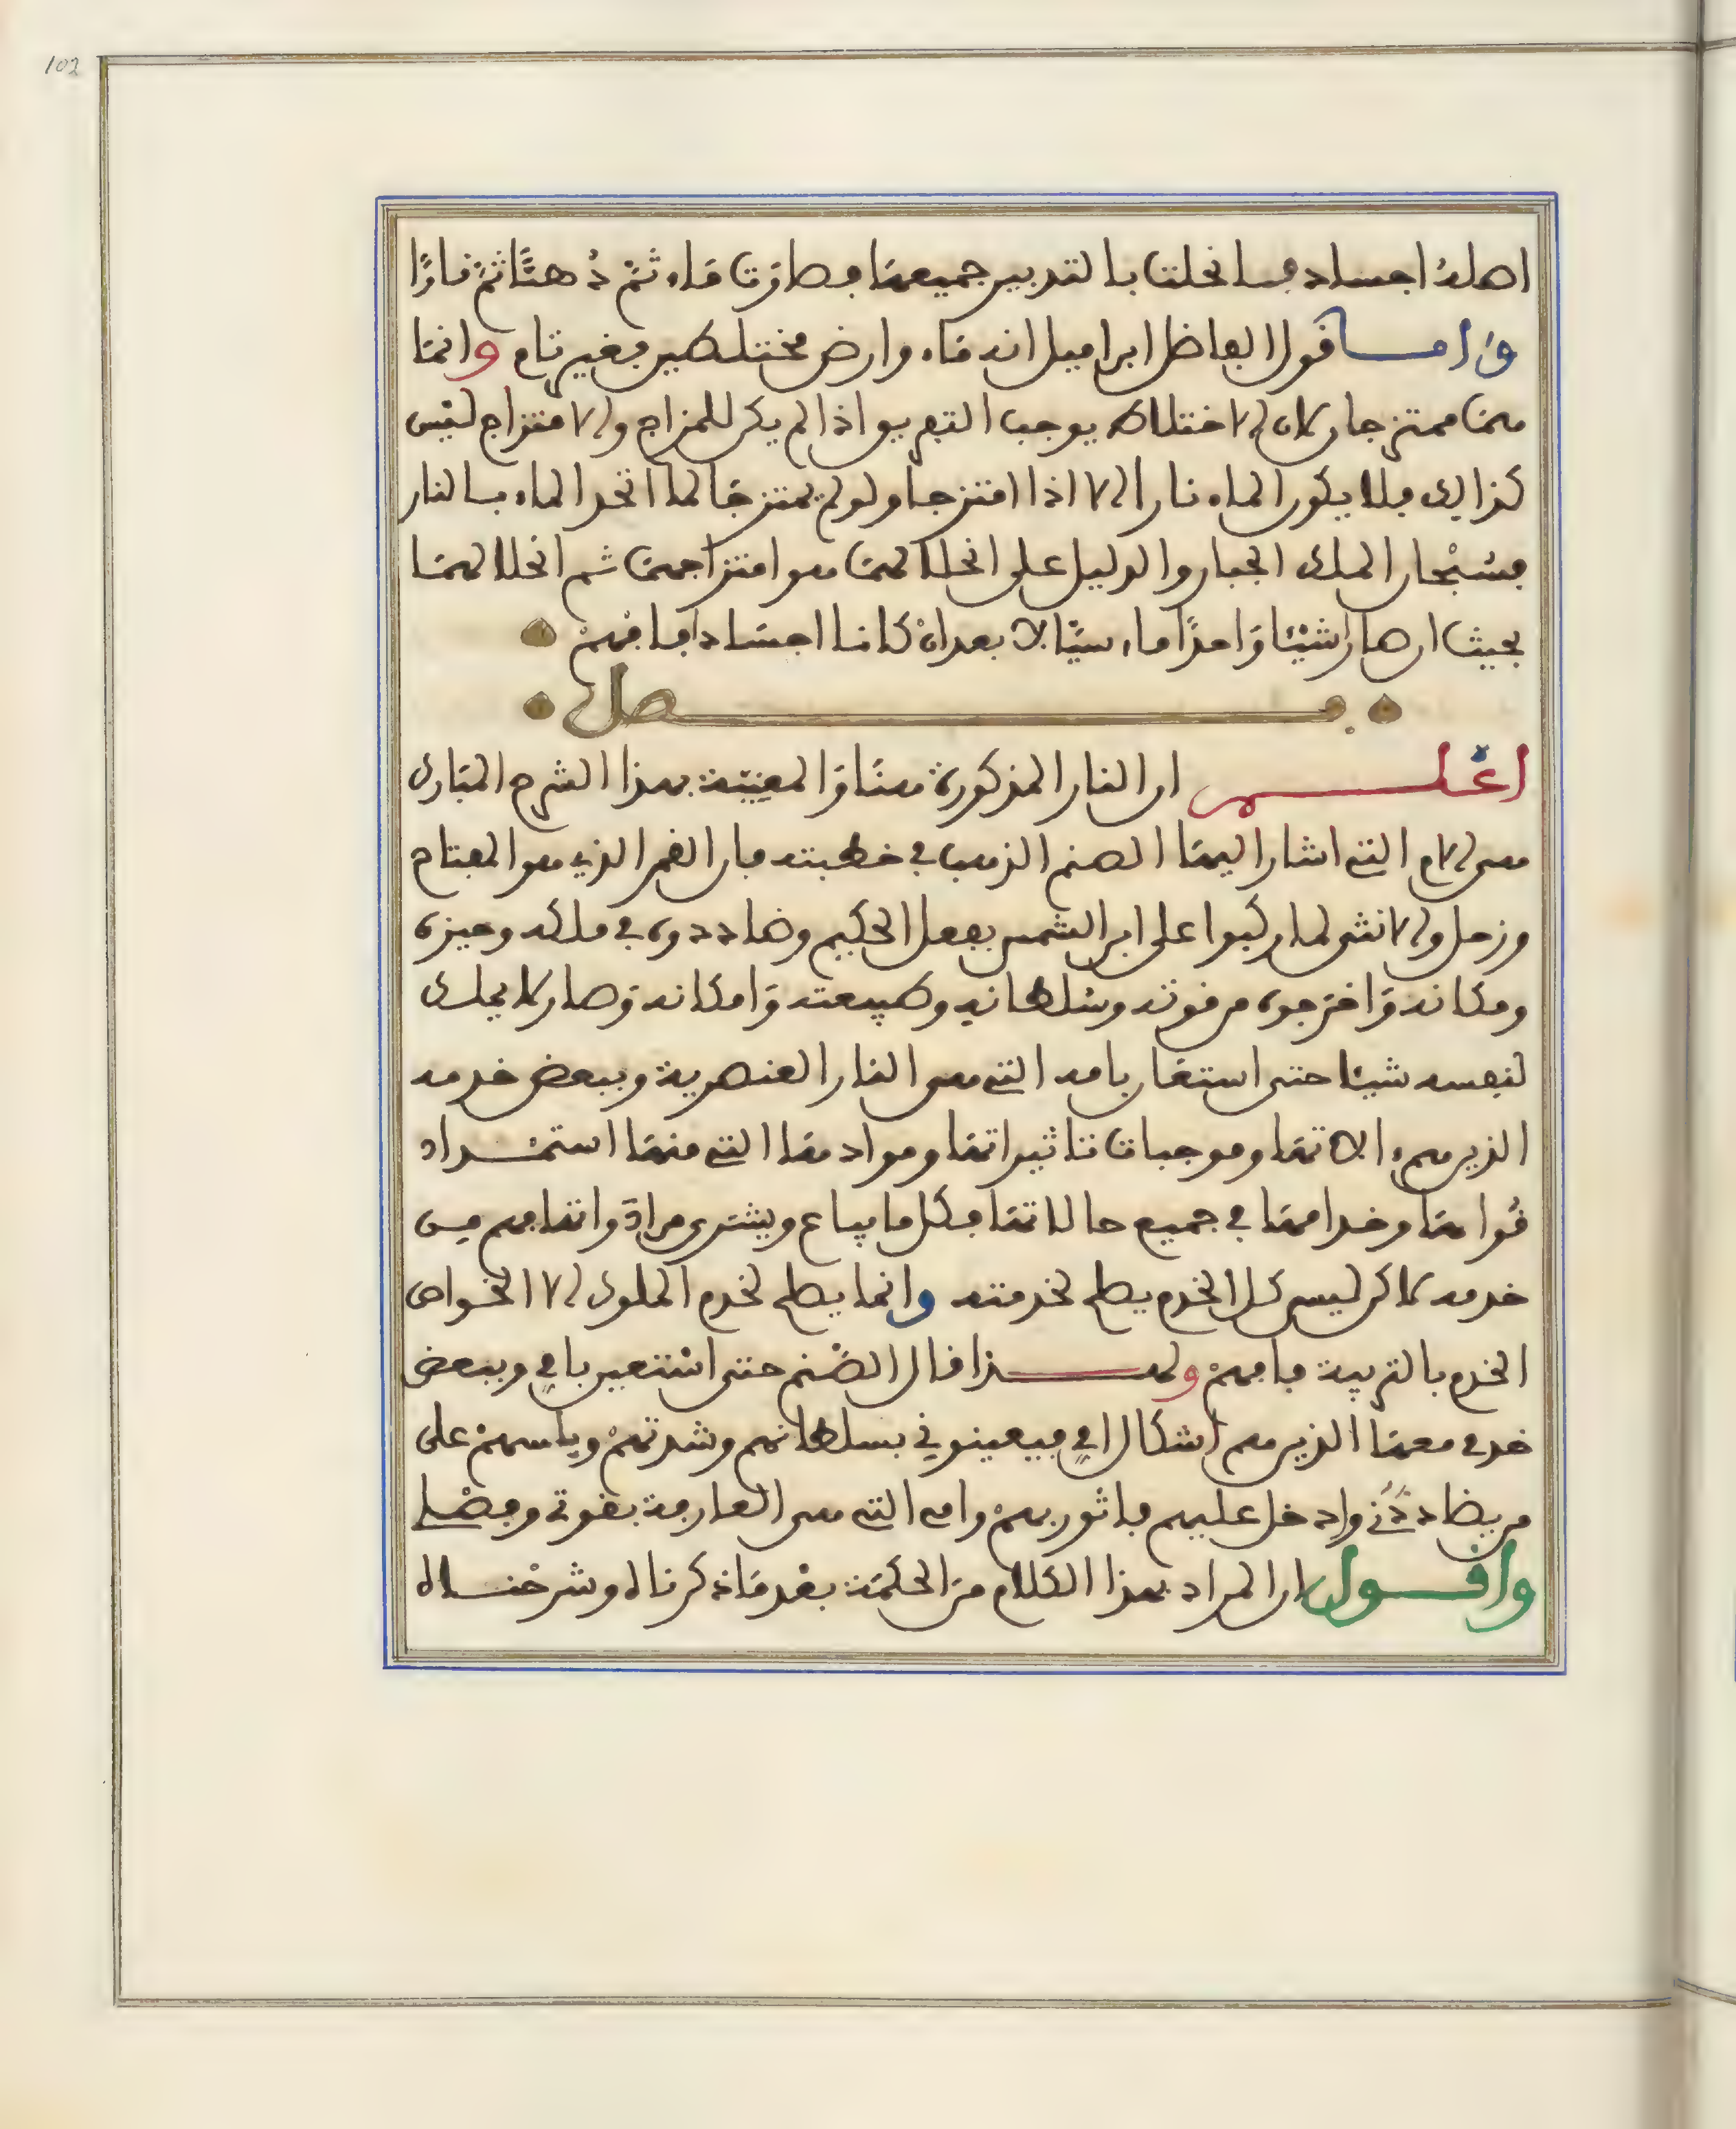 102
اصله اجساد فانحلت بالتدبير جميعها فصارت ماء ثم دهنا ثم نارا
واما قول الفاضل ابراميل انه ماء وارض مختلطين فغير تام وانما
هما ممتزجان لان الاختلاط يوجب التفريق اذا لم يكن للمزاج والامتزاج ليس
كذالك فلا يكون الماء نارا الا اذا امتزجا ولو لم يمتزجا لما اتحد الماء بالنار
فسبحان الملك الجبار والدليل على انحلالهما هو امتزاجهما ثم انحلالهما
بحيث ان صارا شيئا واحدا ماء سيالا بعد ان كانا اجسادا فافهم
فصل
اعلم ان النار المذكورة هنا والمعنية بهذا الشرح المبارك
هى الام التى اشار اليها الصنم الذهب في خطبته فان القمر الذي هو المفتاح
وزحل والانثى لما ركبوا على ابن الشمس بفعل الحكيم وضاددوه في ملكه وحيزه
ومكانه واخرجوه من قوته وسلطانه وطبيعته وامكانه وصار لا يملك
لنفسه شيئا حتى استعان بامه التى هى النار العنصرية وببعض خدمه
الذين هم الاتها وموجبات تاثيراتها وموادها التى منها استمداد
قواها وخدامها في جميع حالاتها فكل ما يباع ويشترى مرادة وانها بهم من
خدمه لاكن ليس كل الخدم يصلح لخدمته وانما يصلح لخدم الملوك الا الخواص
الخدم بالتربية فافهم ولهذا قال الصنم حتى استعين بامي وببعض
خدمي معها الذين هم اشكال امي فيعينوني بسلطانهم وشدتهم وباسهم على
من يضاددني وادخل عليهم فاثور بهم وامى التى هى العارفة بقوتى وفضلى
واقول ان المراد بهذا الكلام من الحكمة بعد ما ذكرناه وشرحناه